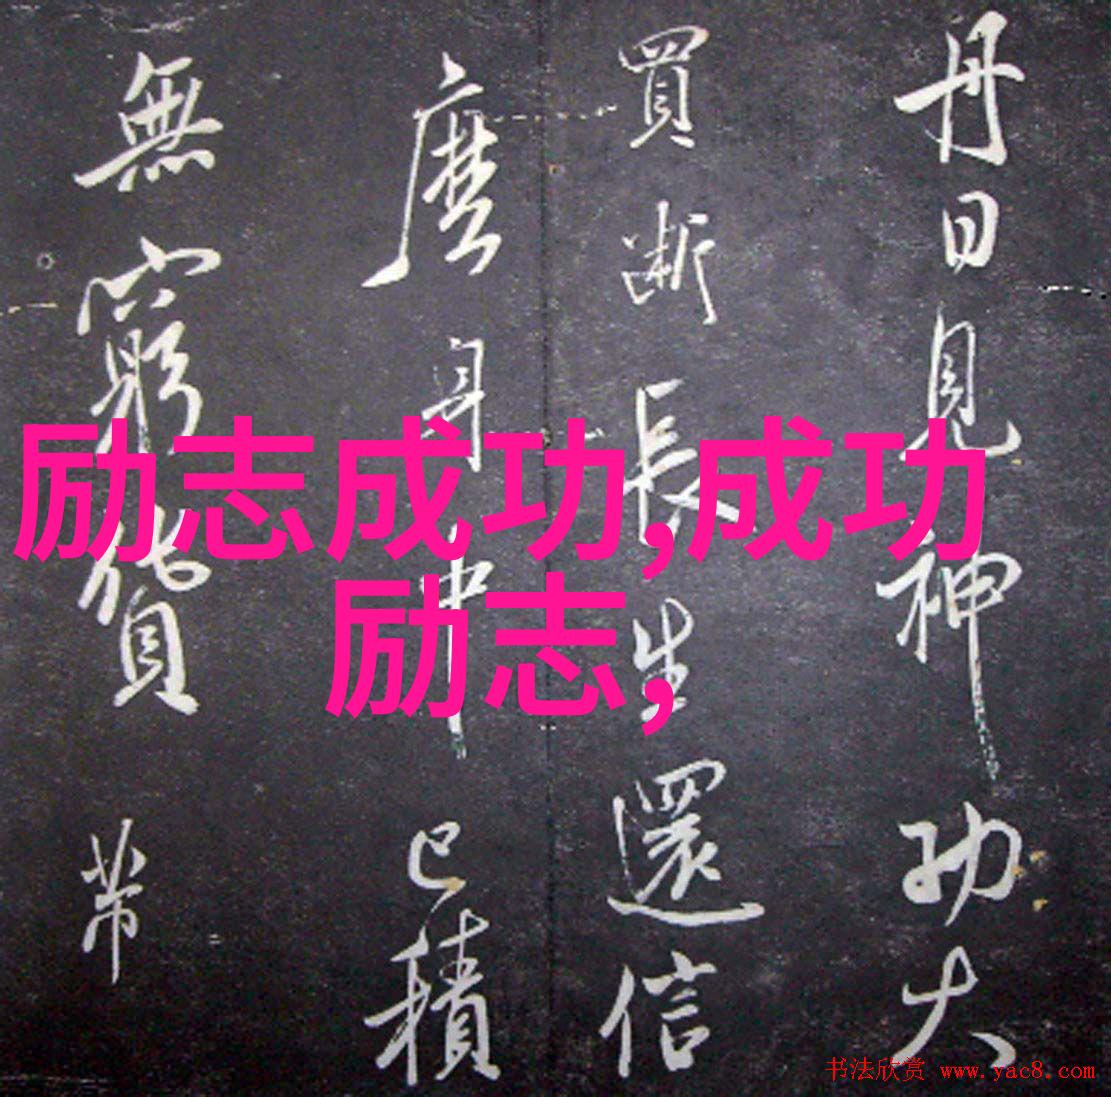 丹日見神功大
買斷長生還信
麼身中已積
無窮貨帶
励志成功,成功
励志,
书法欣赏 www.yac8.com